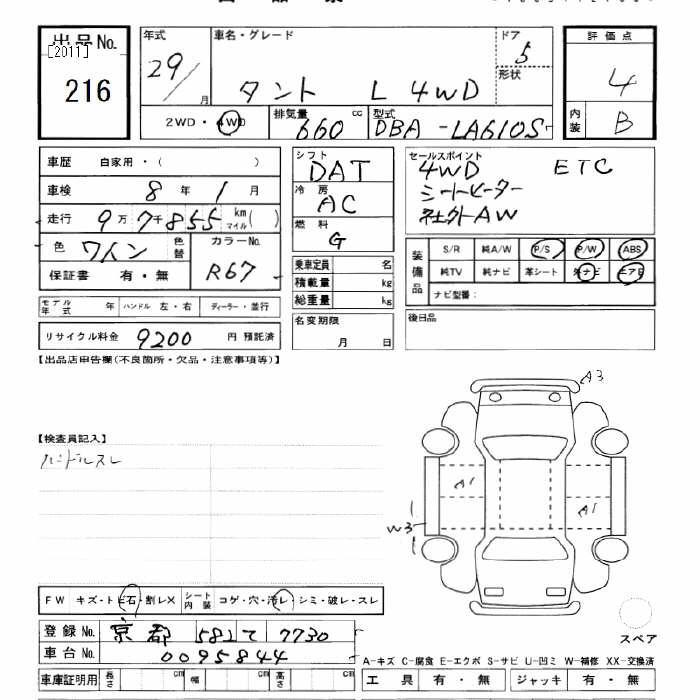 出品No. 年式 車名・グレード ドア 評価点
[2011] 29/ タント L 4WD 5 4
216 月 形状
2WD・4WD 排気量 cc 型式 内装 B
660 DBA-LA610S
車歴 自家用・( ) シフト DAT セールスポイント
車検 8年 1月 冷房 AC 4WD ETC
走行 9万 7千 855 km マイル ( ) 燃料 G シートヒーター
色 ワイン 色替 カラーNo. R67 社外AW
保証書 有・無 乗車定員 名 装備品 S/R 純A/W P/S P/W ABS
積載量 kg 純TV 純ナビ 革シート 外ナビ エアB
モデル年式 年 ハンドル 左・右 ディーラー・並行 総重量 kg ナビ型番:
リサイクル料金 9200 円 預託済 名変期限 月 日 後日品
【出品店申告欄(不良箇所・欠品・注意事項等)】
A3
【検査員記入】
ハンドルスレ
A1 A1
W3
FW キズ・トビ石・割レX シート内装 コゲ・穴・汚レ・シミ・破レ・スレ
登録No. 京都 582 て 7730
スペア
車台No. 0095844
A-キズ C-腐食 E-エクボ S-サビ U-凹ミ W-補修 XX-交換済
車庫証明用 長さ cm 幅 cm 高さ cm 工具 有・無 ジャッキ 有・無